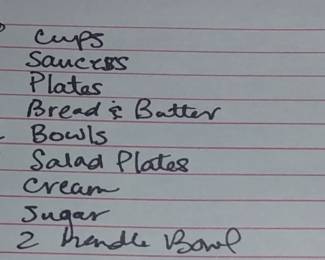 Cups
Saucers
Plates
Bread & Butter
Bowls
Salad Plates
Cream
Sugar
2 Handle Bowl